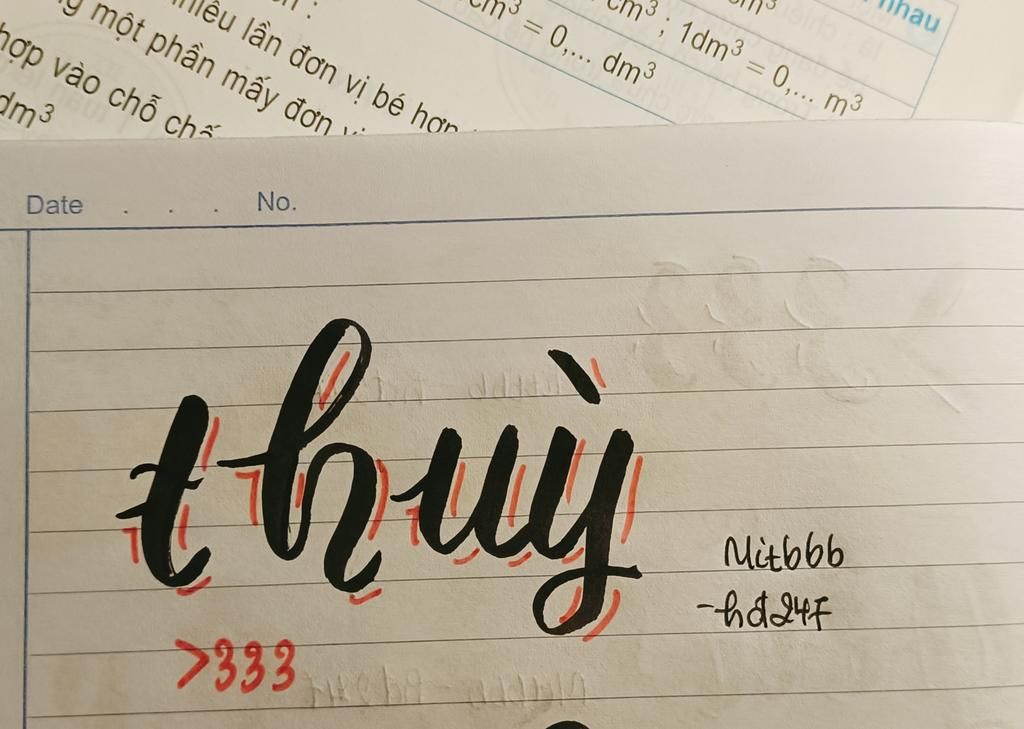 nhiều lần đơn vị bé hơn
một phần mấy đơn
hợp vào chỗ
dm³
cm³ = 0,... dm³
cm³ ; 1dm³ = 0,... m³
cm³
nhau
Date . . . No.
thuỳ
Mitbbb
-hđ24F
>333